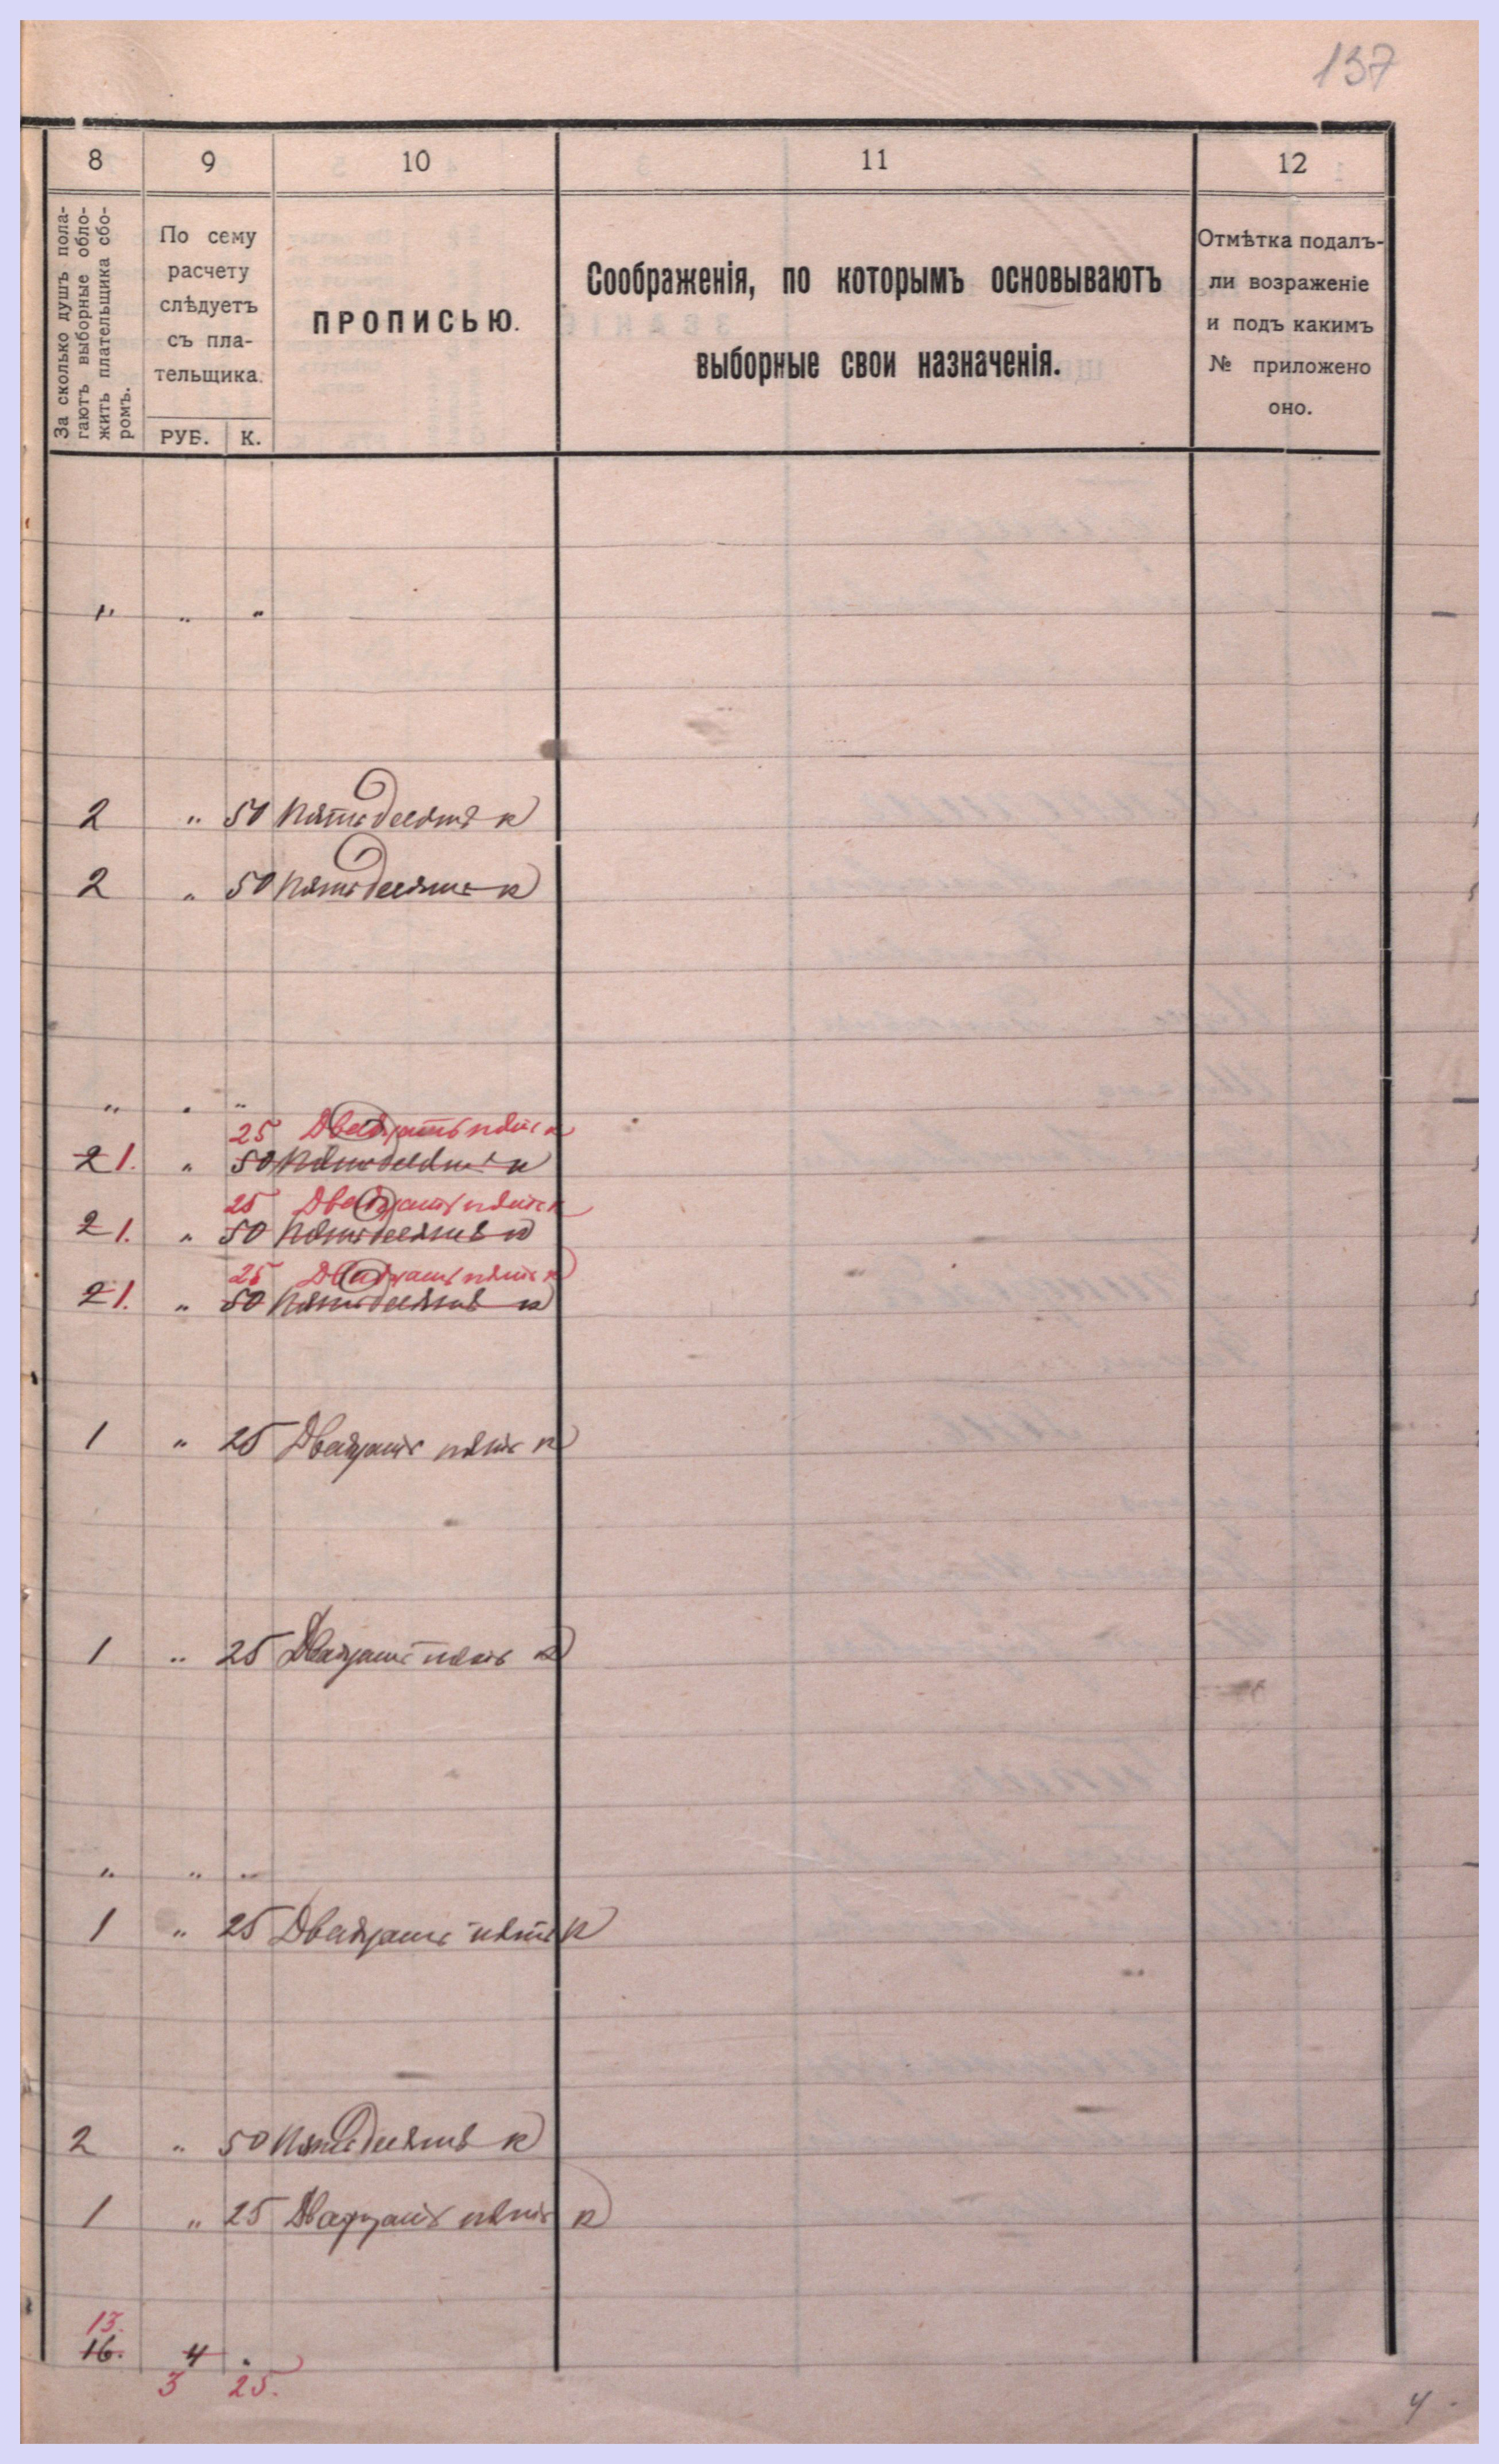 137
8 9 10 11 12
За сколько душъ пола-
гаютъ выборные обло-
жить плательщика сбо-
ромъ.
По сему
расчету
слѣдуетъ
съ пла-
тельщика.
РУБ. К.
ПРОПИСЬЮ.
Соображенія, по которымъ основываютъ
выборные свои назначенія.
Отмѣтка подалъ-
ли возраженіе
и подъ какимъ
№ приложено
оно.
" " "
2 " 50 Пятьдесятъ к
2 " 50 Пятьдесятъ к
" " "
25 Двадцать пять к
2 1. " 50 Пятьдесятъ к
25 Двадцать пять к
2 1. " 50 Пятьдесятъ к
25 Двадцать пять к
2 1. " 50 Пятьдесятъ к
1 " 25 Двадцать пять к
1 " 25 Двадцать пять к
" " "
1 " 25 Двадцать пять к
2 " 50 Пятьдесятъ к
1 " 25 Двадцать пять к
13.
16. 4 .
3 25.
4.